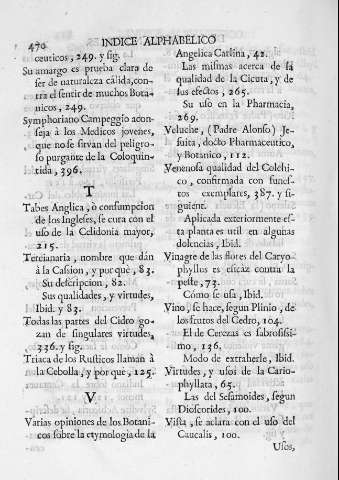 470 INDICE ALPHABELICO
ceuticos, 249. y sig.
Su amargo es prueba clara de
ser de naturaleza cálida, con-
tra el sentir de muchos Bota-
nicos, 249.
Symphoriano Campeggio acon-
seja à los Medicos jovenes,
que no se sirvan del peligro-
so purgante de la Coloquin-
tida, 396.
T
Tabes Anglica, ò consumpcion
de los Ingleses, se cura con el
uso de la Celidonia mayor,
215.
Tercianaria, nombre que dán
à la Cassion, y por què, 83.
Su descripcion, 82.
Sus qualidades, y virtudes,
Ibid. y 83.
Todas las partes del Cidro go-
zan de singulares virtudes,
336. y sig.
Triaca de los Rusticos llaman à
la Cebolla, y por què, 125.
V
Varias opiniones de los Botani-
cos sobre la etymologia de la
Angelica Carlina, 42.
Las mismas acerca de la
qualidad de la Cicuta, y de
sus efectos, 265.
Su uso en la Pharmacia,
269.
Veluche, (Padre Alonso) Je-
suita, docto Pharmaceutico,
y Botanico, 112.
Venenosa qualidad del Colchi-
co, confirmada con funes-
tos exemplares, 387. y si-
guient.
Aplicada exteriormente es-
ta planta es util en algunas
dolencias, Ibid.
Vinagre de las flores del Caryo-
phyllos es eficáz contra la
peste, 73.
Cómo se usa, Ibid.
Vino, se hace, segun Plinio, de
los frutos del Cedro, 104.
El de Cerezas es sabrosissi-
mo, 136.
Modo de extraherle, Ibid.
Virtudes, y usos de la Cario-
phyllata, 65.
Las del Sesamoides, segun
Dioscorides, 100.
Vista, se aclara con el uso del
Caucalis, 100.
Usos,